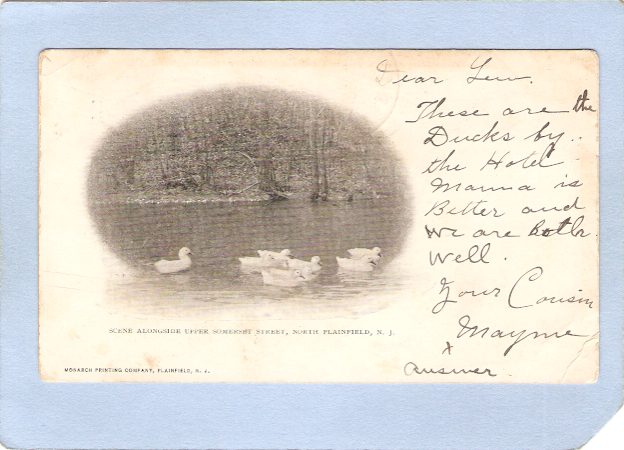 Dear Lew.
These are the
Ducks by
the Hotel
Mamma is
Better and
we are both
well.
Your Cousin
Mayme
x
answer.
SCENE ALONGSIDE UPPER SOMERSET STREET, NORTH PLAINFIELD, N. J.
MONARCH PRINTING COMPANY, PLAINFIELD, N. J.